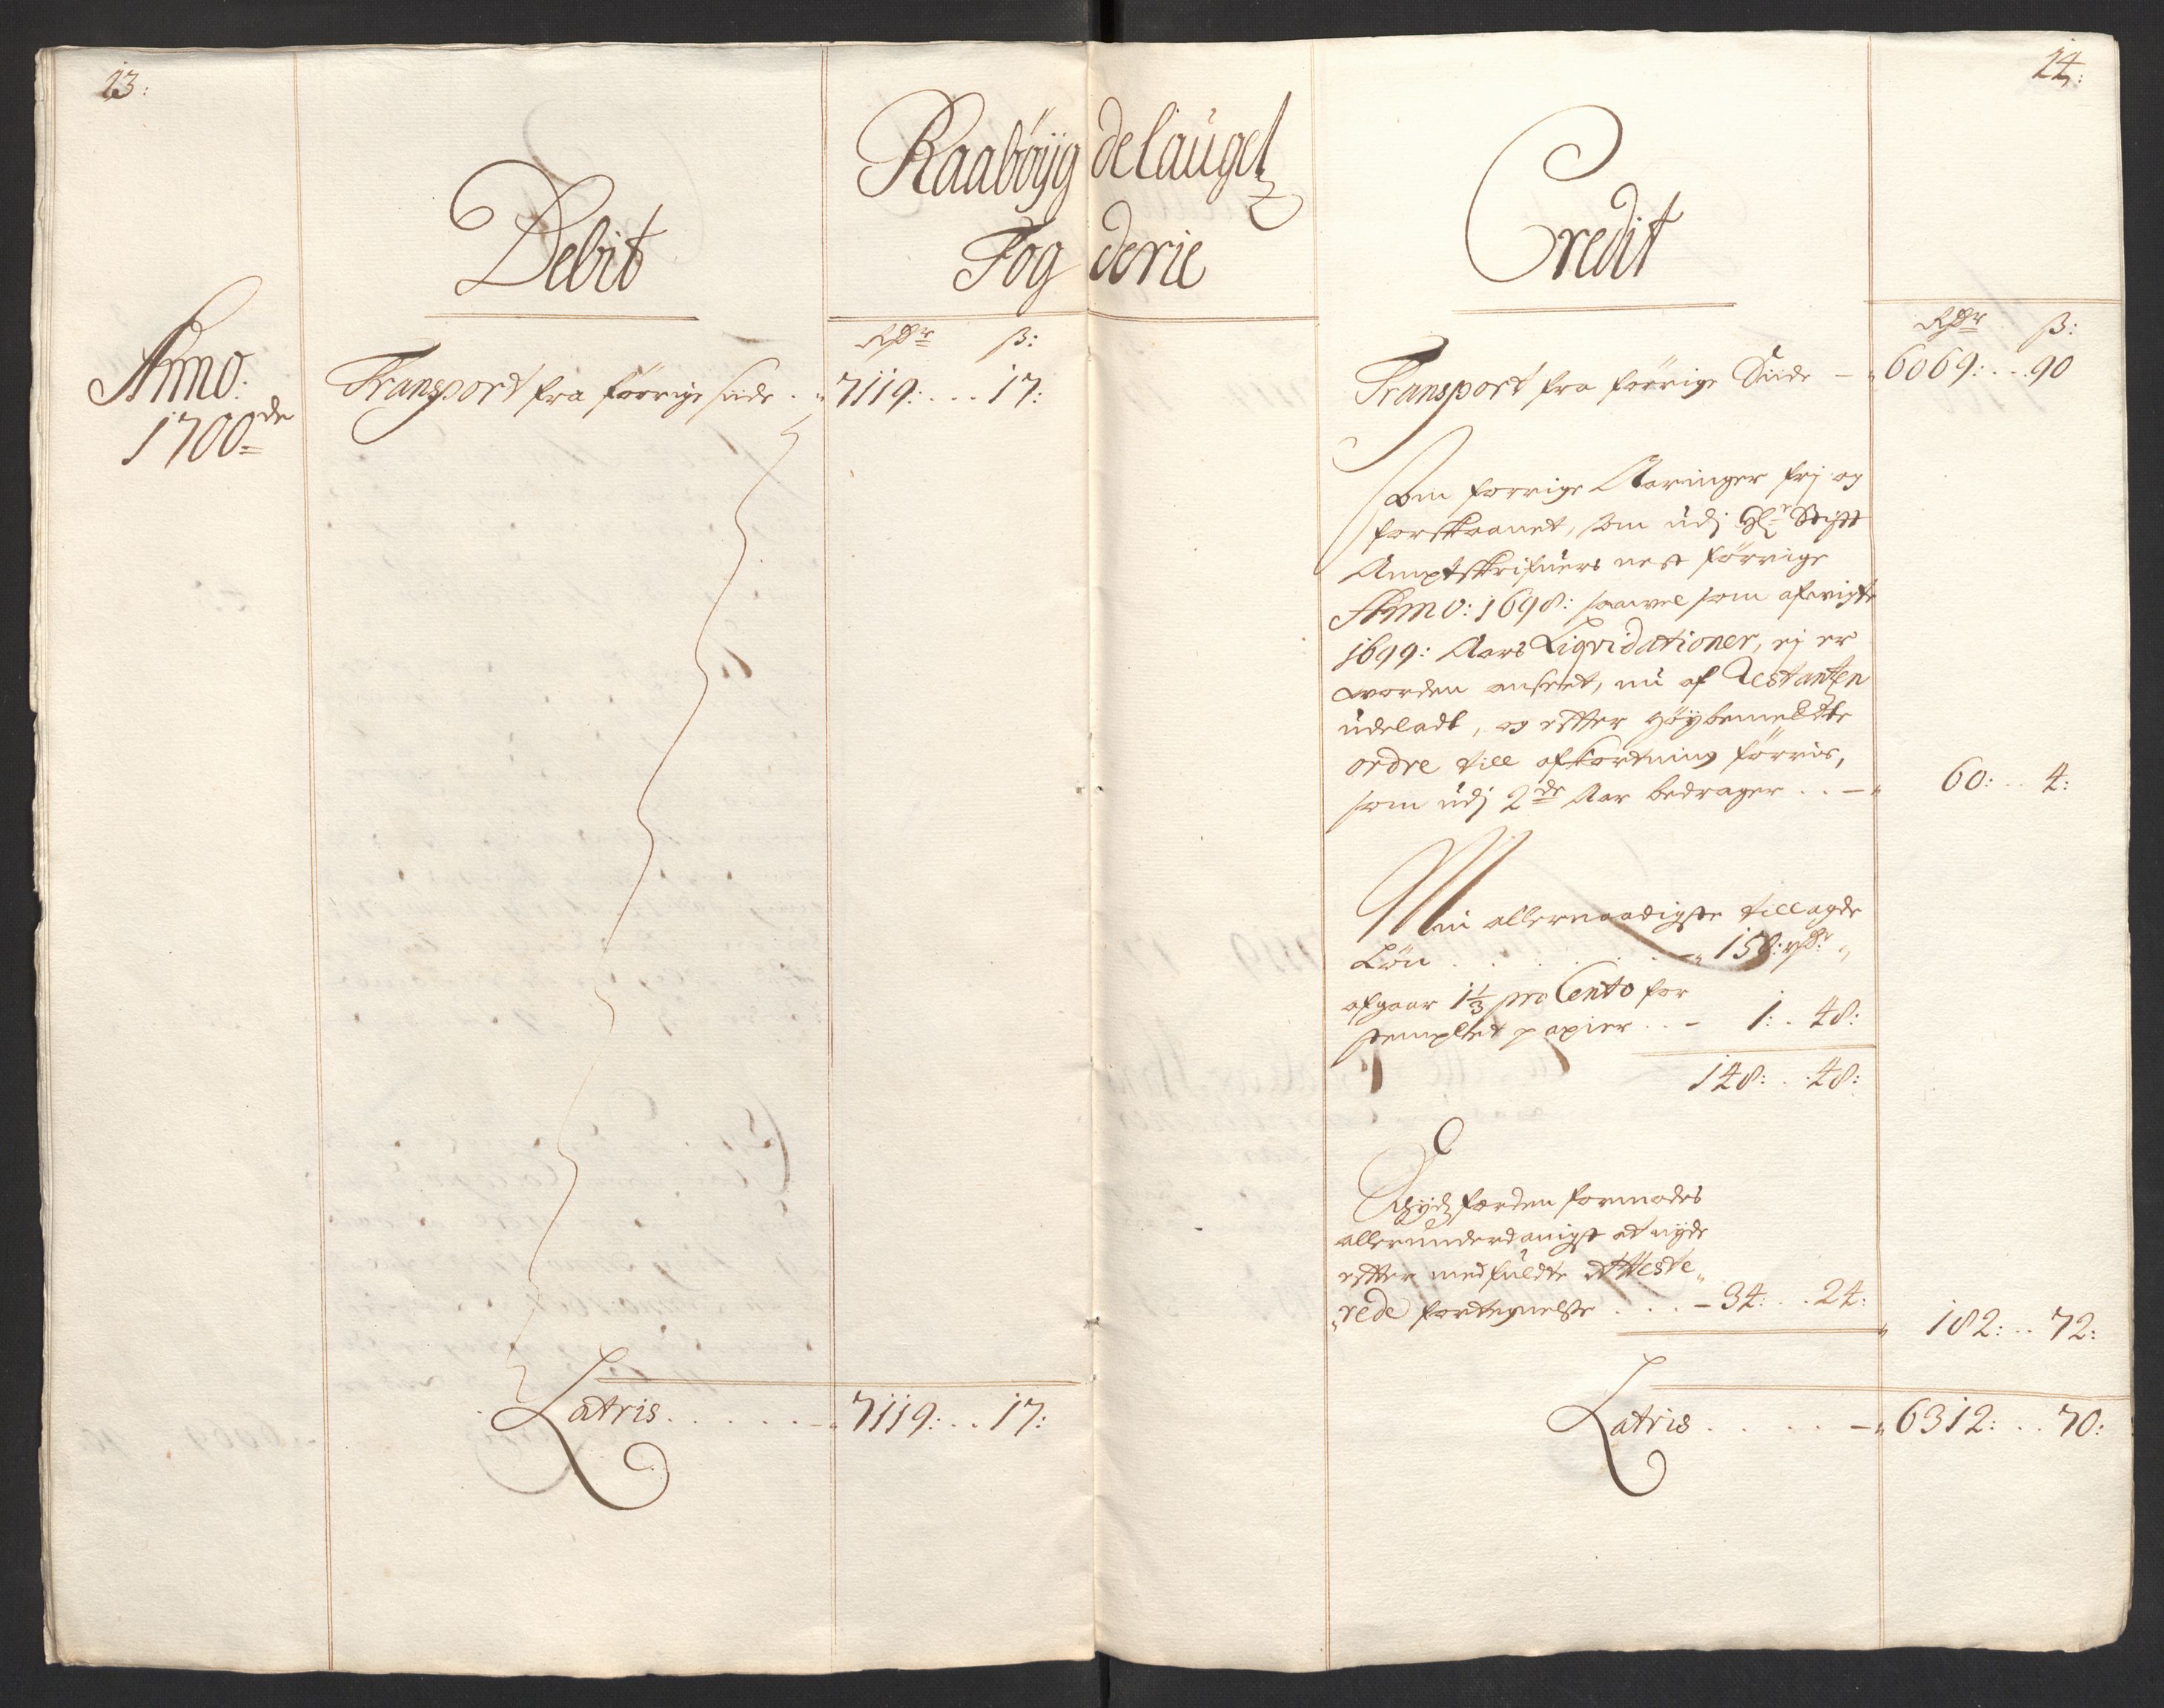 13:
Raabøÿgdelaugetz
Fogderie
Debit
Anno.
1700de
Rdr ß:
Transport fra førrige siide . 7119: . . . 17:
Latris . . . . . . 7119: . . 17:
14:
Credit
Rdr ß:
Transport fra førrige Siide – 6069: . . . 90
Som forrige Aaringer frj og
forskaanet, som udj Hr Stigtt
Amptskrifuers nest førrige
Anno: 1698: saavel som afvigte
1699: Aars Liqvidationer, ej er
worden anseet, nu af Restantzen
udeladt, og effter Høÿbemeldte
ordre till afkortning førris,
som udj 2de Aar bedrager . . – 60: . . 4:
Min allernaadigste tillagde
Løn . . . . . . – 150: rdr „
afgaar 1 1/3 pro Cento for
stemplet papier . . – 1: . 48:
148: . . 48:
færden formodes
allerunderdanigst at nÿde
effter medfuldte atteste„
„rede fortegnelsse . . . . – 34: . . 24:
182: . . 72:
Latris . . . . – 6312: . . 70: